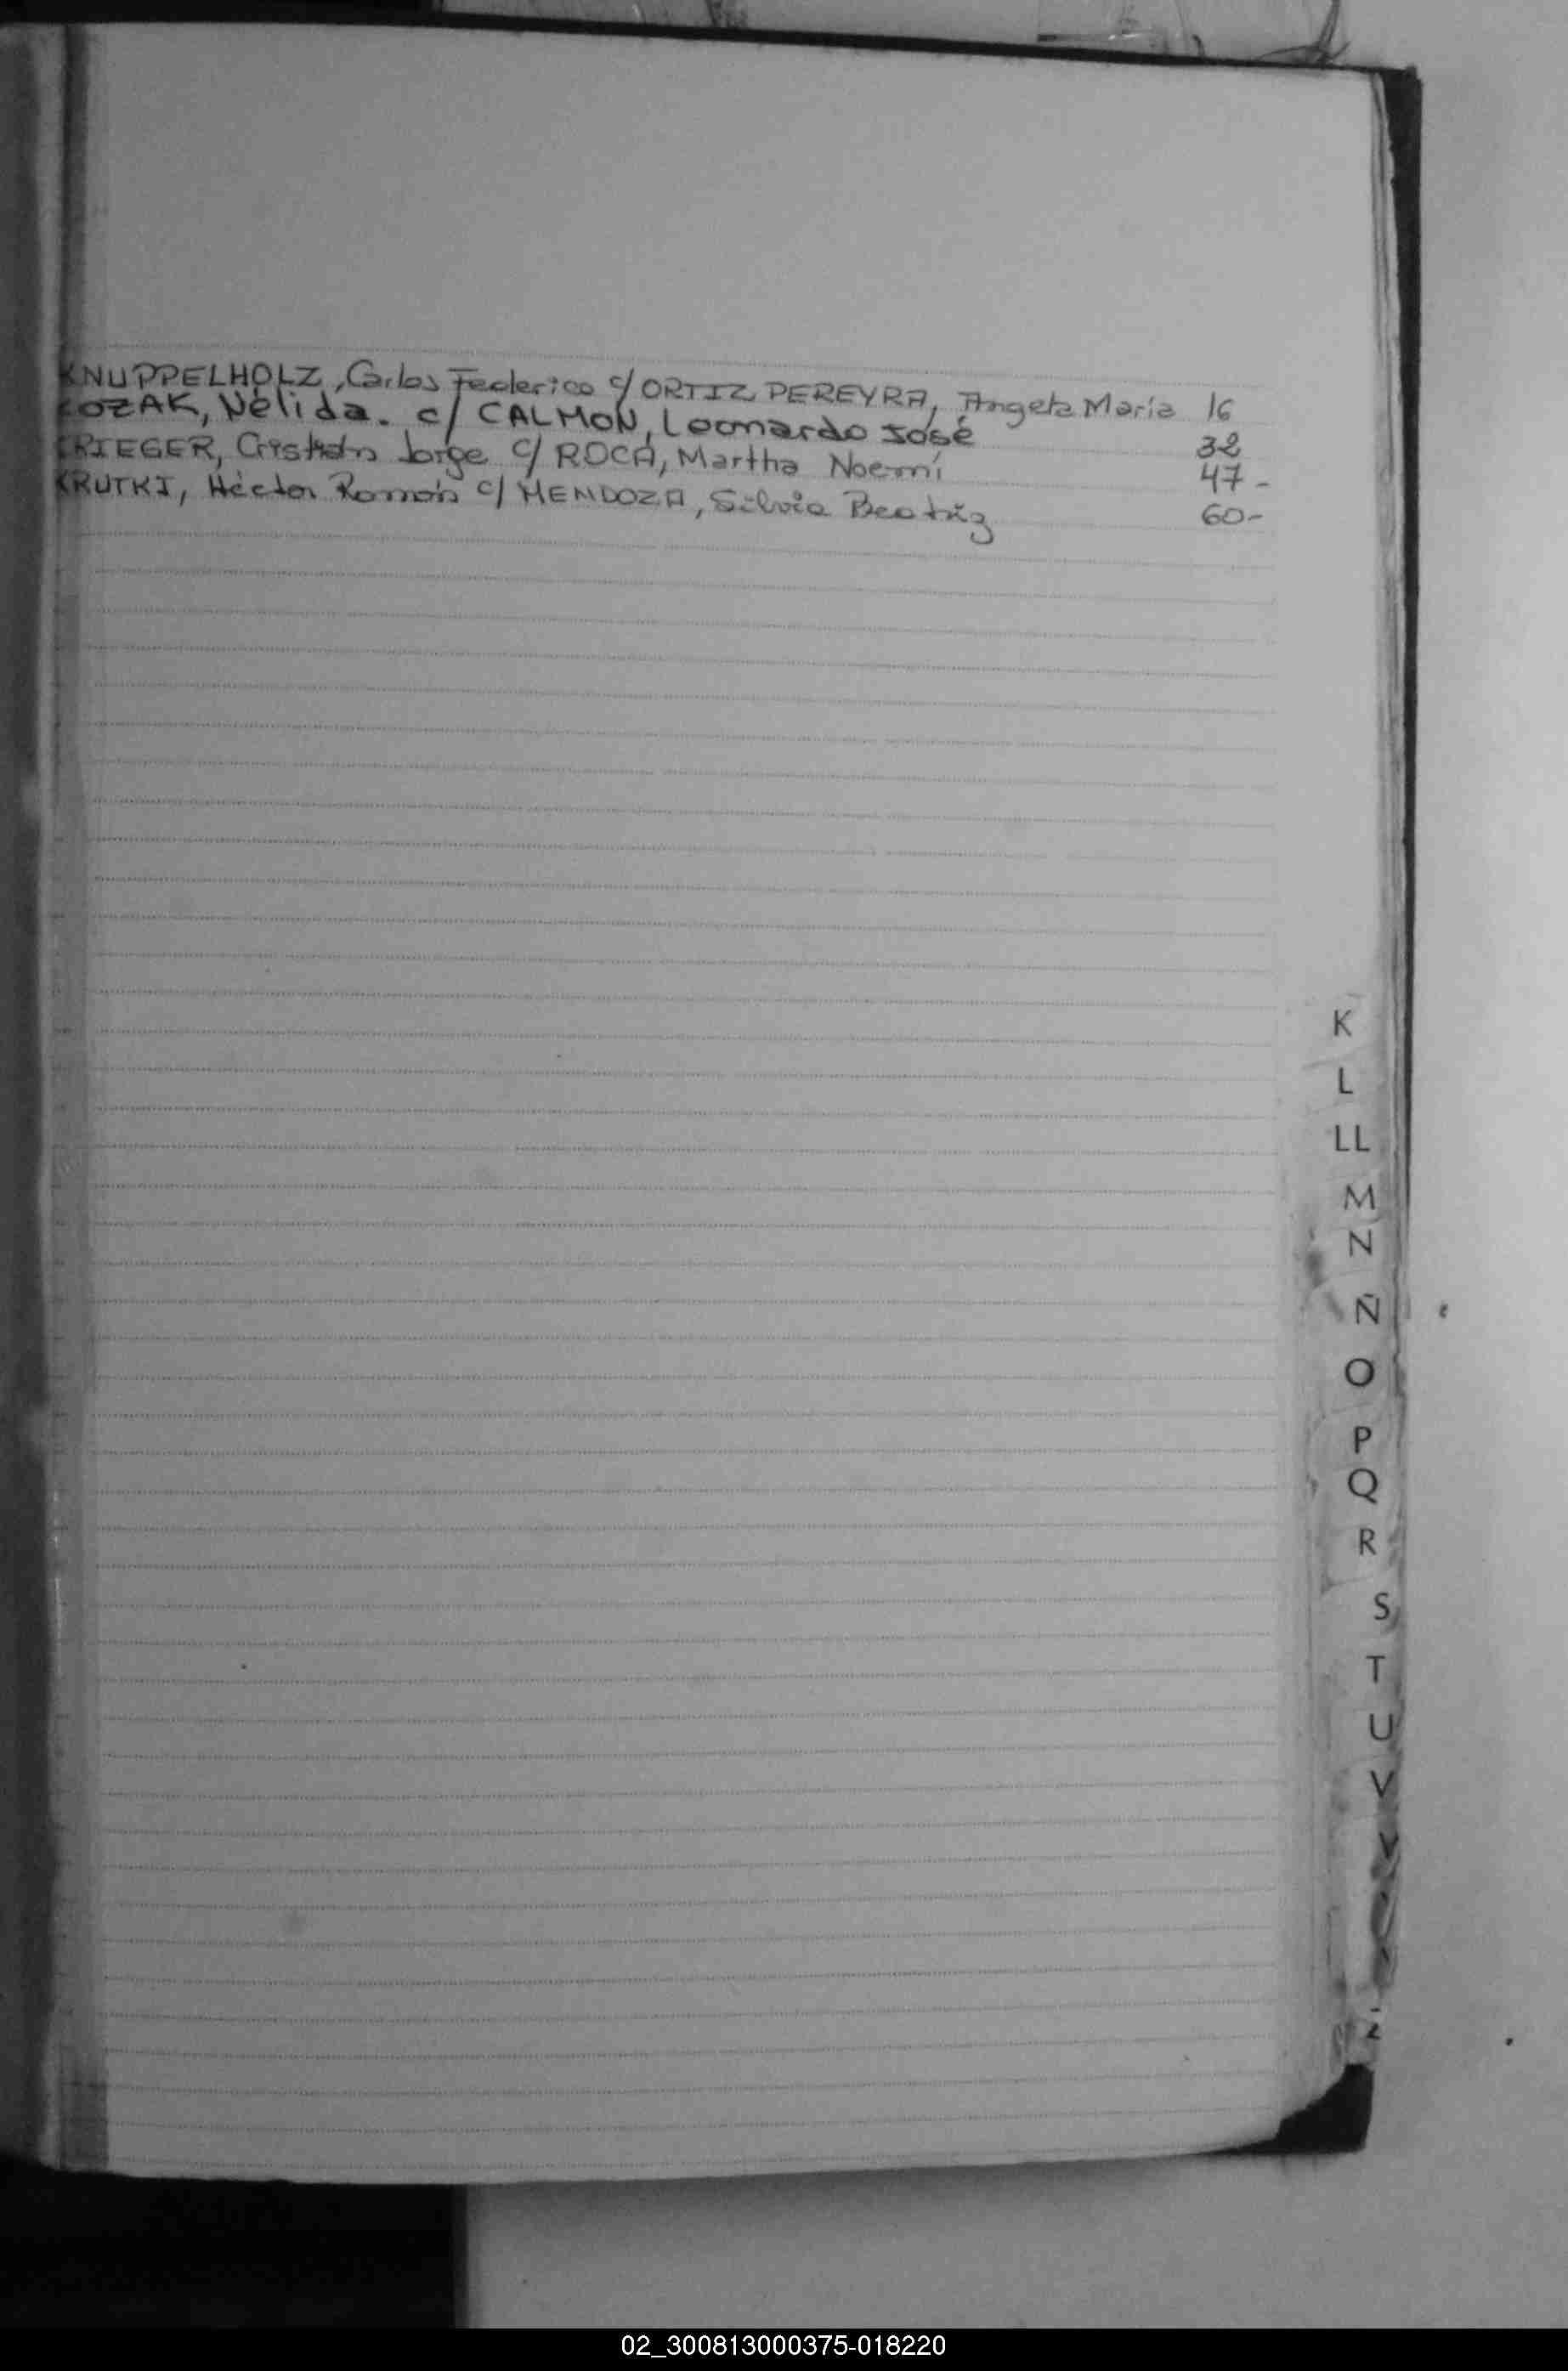 KNUPPELHOLZ, Carlos Federico c/ ORTIZ PEREYRA, Angela María 16
KOZAK, Nélida. c/ CALMON, Leonardo José 32
KRIEGER, Cristian Jorge c/ ROCA, Martha Noemí 47-
KRUTKI, Héctor Ramón c/ MENDOZA, Silvia Beatriz 60-
K
L
LL
M
N
Ñ
O
P
Q
R
S
T
U
V
Y
Z
02_300813000375-018220